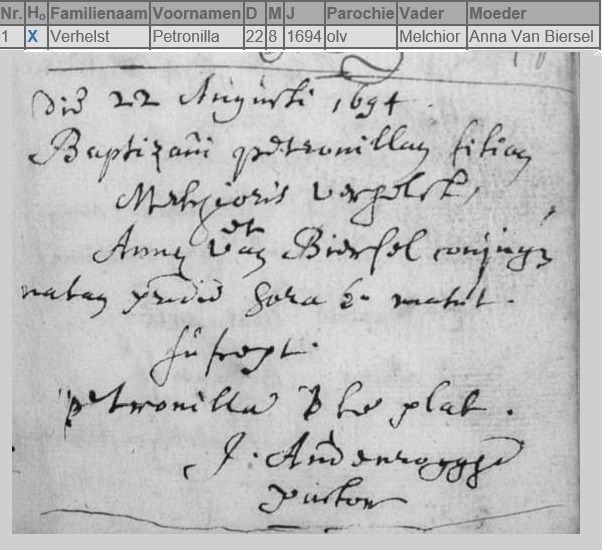 Nr. Ho Familienaam Voornamen D M J Parochie Vader Moeder
1 X Verhelst Petronilla 22 8 1694 olv Melchior Anna Van Biersel
Die 22 Augusti 1694
Baptizavi petronillam filiam
Melchioris verhelst,
et
Annae van Biersel conjugum
natam pridie hora 6a matut.
suscept.
petronilla le plat.
J. Anderogghe
pastor